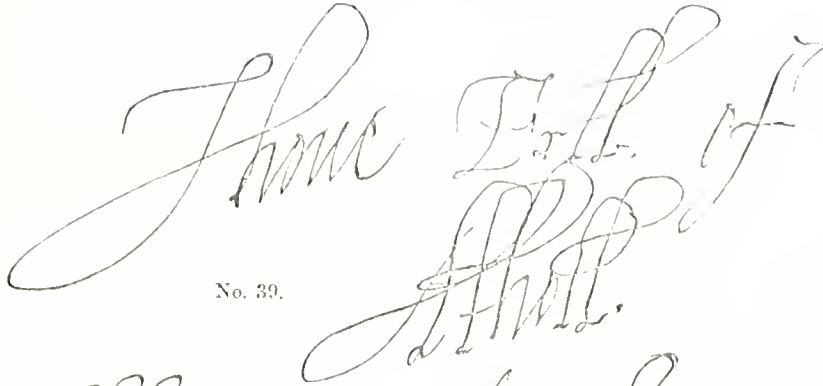 Jhone Erll of
Atholl.
No. 39.